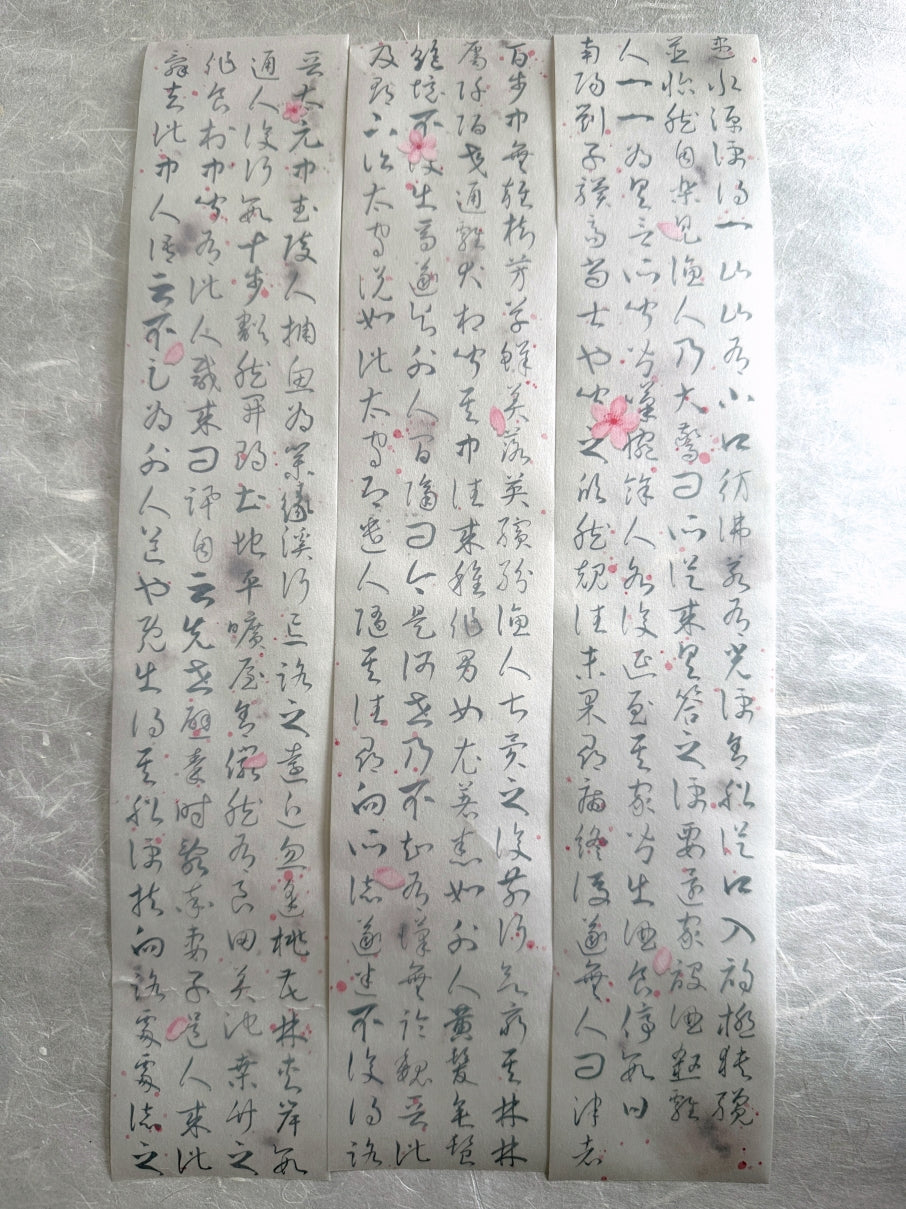 晉太元中武陵人捕魚為業緣溪行忘路之遠近忽逢桃花林夾岸數
百步中無雜樹芳草鮮美落英繽紛漁人甚異之復前行欲窮其林林
盡水源便得一山山有小口彷彿若有光便舍船從口入初極狹纔
通人復行數十步豁然開朗土地平曠屋舍儼然有良田美池桑竹之
屬阡陌交通雞犬相聞其中往來種作男女衣著悉如外人黃髮垂髫
並怡然自樂見漁人乃大驚問所從來具答之便要還家設酒殺雞
作食村中聞有此人咸來問訊自云先世避秦時亂率妻子邑人來此
絕境不復出焉遂與外人間隔問今是何世乃不知有漢無論魏晉此
人一一為具言所聞皆嘆惋餘人各復延至其家皆出酒食停數日
辭去此中人語云不足為外人道也既出得其船便扶向路處處誌之
及郡下詣太守說如此太守即遣人隨其往尋向所誌遂迷不復得路
南陽劉子驥高尚士也聞之欣然規往未果尋病終後遂無人問津者